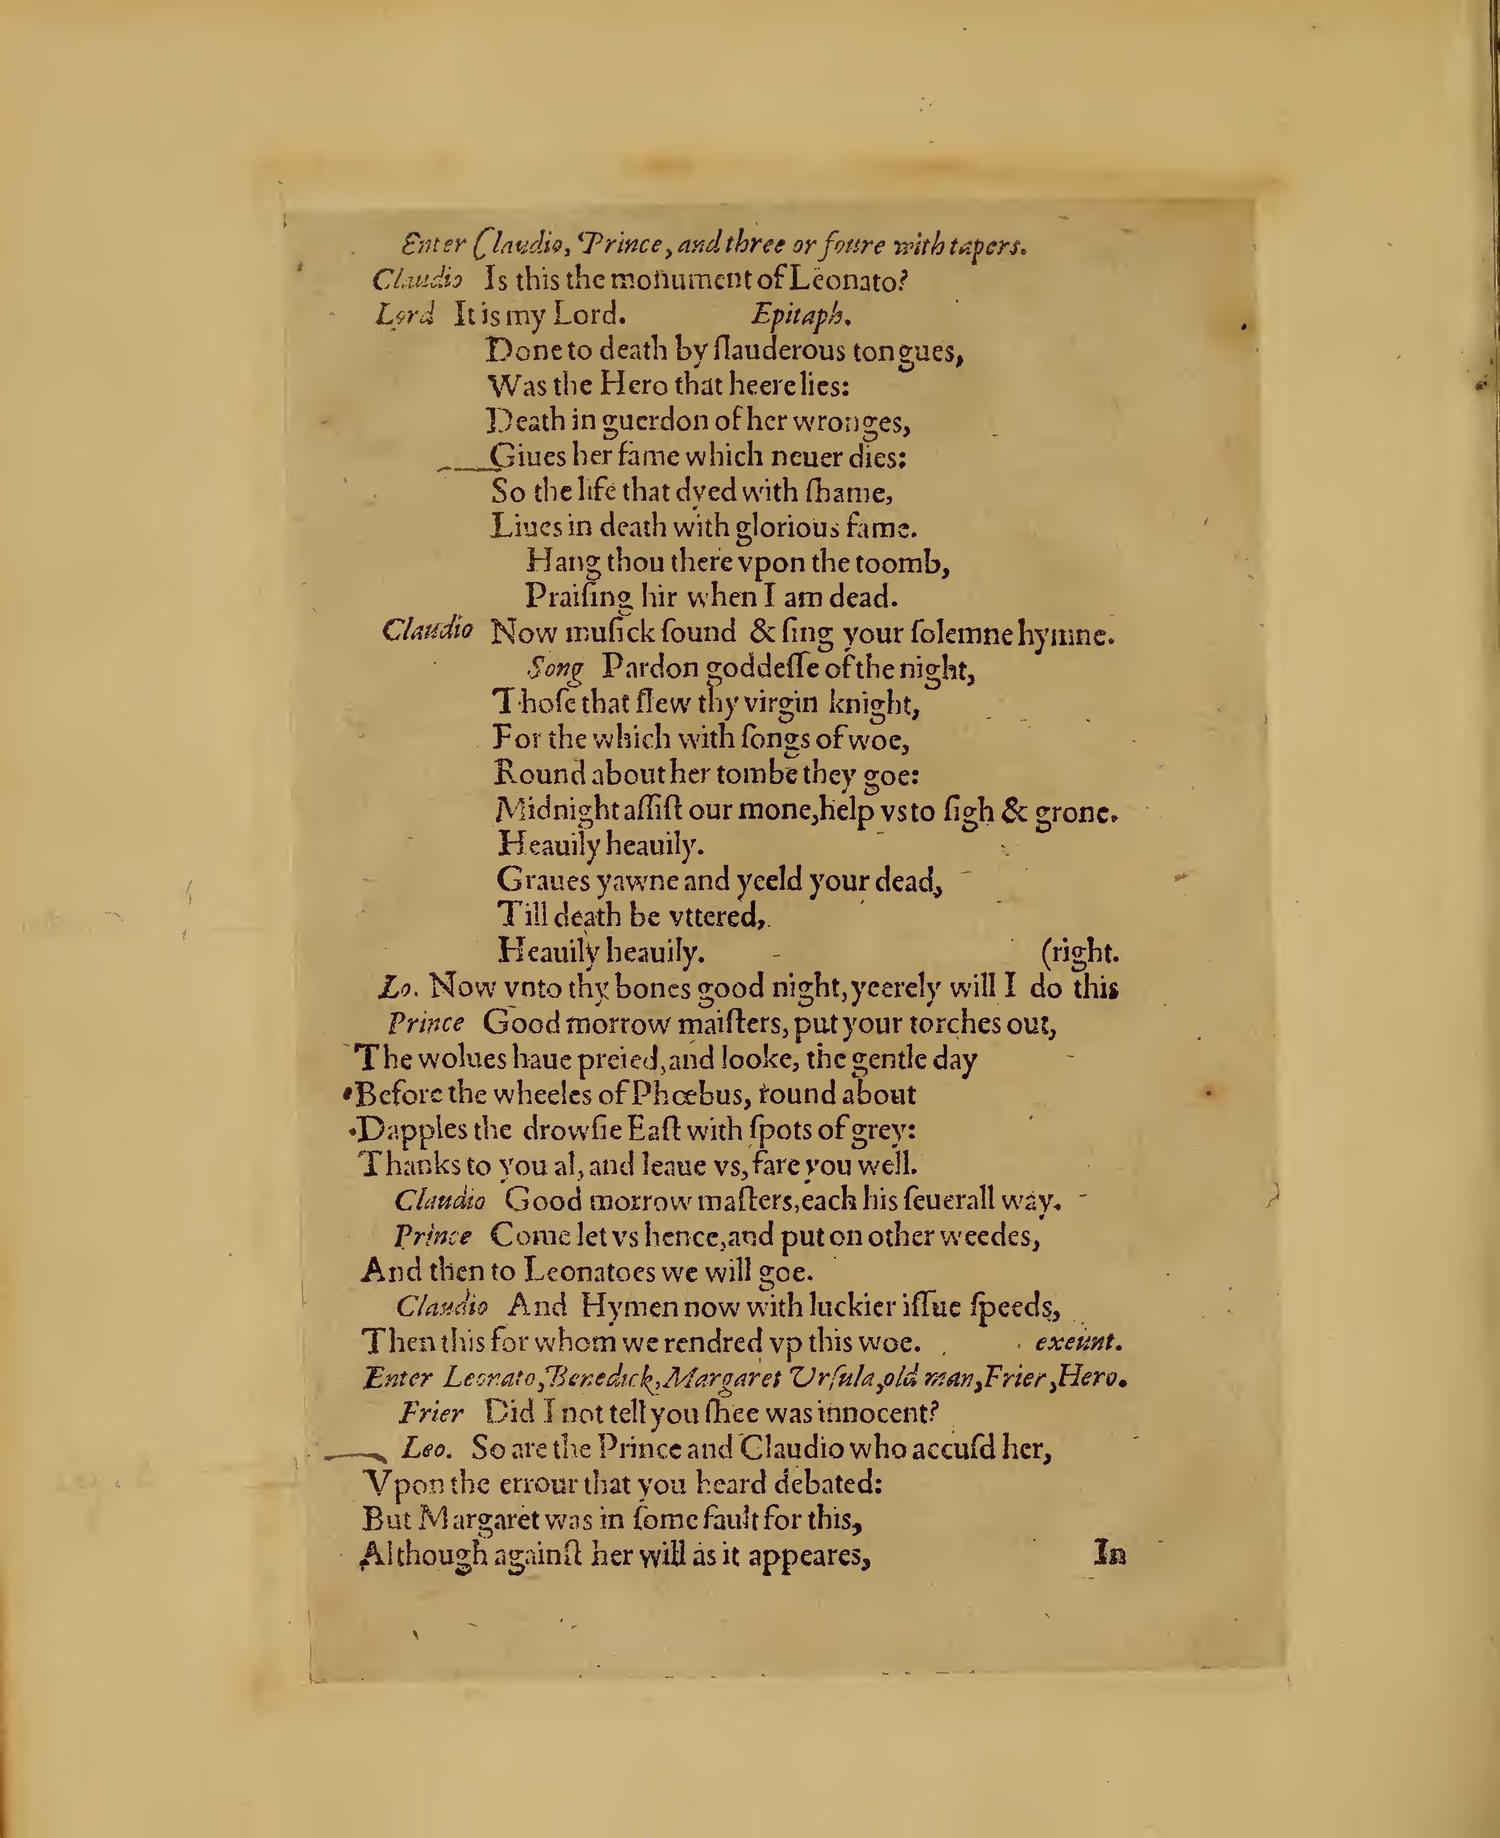 Enter Claudio, Prince, and three or foure with tapers.
Claudio Is this the monument of Leonato?
Lord It is my Lord. Epitaph.
Done to death by ſlauderous tongues,
Was the Hero that heere lies:
Death in guerdon of her wronges,
Giues her fame which neuer dies:
So the life that dyed with ſhame,
Liues in death with glorious fame.
Hang thou there vpon the toomb,
Praiſing hir when I am dead.
Claudio Now muſick ſound & ſing your ſolemne hymne.
Song Pardon goddeſſe of the night,
Thoſe that ſlew thy virgin knight,
For the which with ſongs of woe,
Round about her tombe they goe:
Midnight aſſiſt our mone, help vs to ſigh & grone.
Heauily heauily.
Graues yawne and yeeld your dead,
Till death be vttered,
Heauily heauily. (right.
Lo. Now vnto thy bones good night, yeerely will I do this
Prince Good morrow maiſters, put your torches out,
The wolues haue preied, and looke, the gentle day
Before the wheeles of Phœbus, round about
Dapples the drowſie Eaſt with ſpots of grey:
Thanks to you al, and leaue vs, fare you well.
Claudio Good morrow maſters, each his ſeuerall way.
Prince Come let vs hence, and put on other weedes,
And then to Leonatoes we will goe.
Claudio And Hymen now with luckier iſſue ſpeeds,
Then this for whom we rendred vp this woe. exeunt.
Enter Leonato, Benedick, Margaret Vrſula, old man, Frier, Hero.
Frier Did I not tell you ſhee was innocent?
Leo. So are the Prince and Claudio who accuſd her,
Vpon the errour that you heard debated:
But Margaret was in ſome fault for this,
Although againſt her will as it appeares,
In